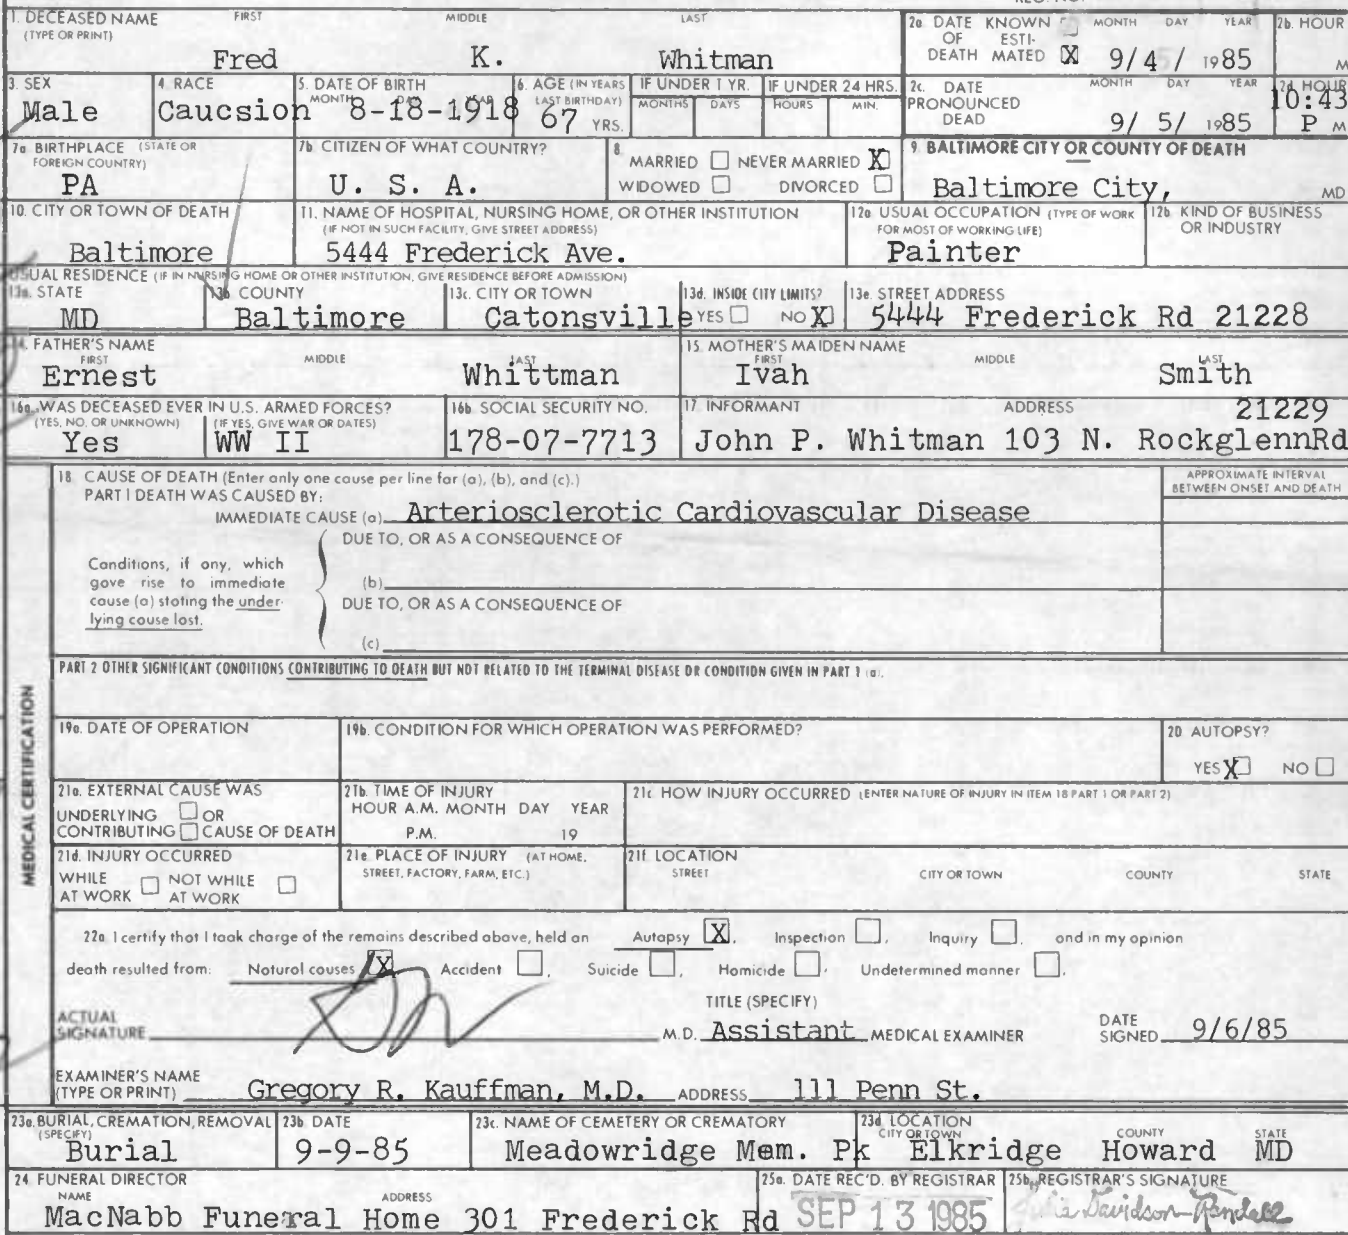 1. DECEASED NAME FIRST MIDDLE LAST
(TYPE OR PRINT)
Fred K. Whitman
2a. DATE KNOWN MONTH DAY YEAR
OF ESTI-
DEATH MATED X 9/4/ 1985
2b. HOUR
M
3. SEX
Male
4. RACE
Caucsion
5. DATE OF BIRTH
MONTH DAY YEAR
8-18-1918
6. AGE (IN YEARS
LAST BIRTHDAY)
67 YRS.
IF UNDER 1 YR.
MONTHS DAYS
IF UNDER 24 HRS.
HOURS MIN.
2c. DATE MONTH DAY YEAR
PRONOUNCED
DEAD 9/ 5/ 1985
2d. HOUR
10:43
P M
7a. BIRTHPLACE (STATE OR
FOREIGN COUNTRY)
PA
7b. CITIZEN OF WHAT COUNTRY?
U. S. A.
8.
MARRIED NEVER MARRIED X
WIDOWED DIVORCED
9. BALTIMORE CITY OR COUNTY OF DEATH
Baltimore City, MD
10. CITY OR TOWN OF DEATH
Baltimore
11. NAME OF HOSPITAL, NURSING HOME, OR OTHER INSTITUTION
(IF NOT IN SUCH FACILITY, GIVE STREET ADDRESS)
5444 Frederick Ave.
12a. USUAL OCCUPATION (TYPE OF WORK
FOR MOST OF WORKING LIFE)
Painter
12b. KIND OF BUSINESS
OR INDUSTRY
USUAL RESIDENCE (IF IN NURSING HOME OR OTHER INSTITUTION, GIVE RESIDENCE BEFORE ADMISSION)
13a. STATE
MD
13b. COUNTY
Baltimore
13c. CITY OR TOWN
Catonsville
13d. INSIDE CITY LIMITS?
YES NO X
13e. STREET ADDRESS
5444 Frederick Rd 21228
14. FATHER'S NAME
FIRST MIDDLE LAST
Ernest Whittman
15. MOTHER'S MAIDEN NAME
FIRST MIDDLE LAST
Ivah Smith
16a. WAS DECEASED EVER IN U.S. ARMED FORCES?
(YES, NO, OR UNKNOWN) (IF YES, GIVE WAR OR DATES)
Yes WW II
16b. SOCIAL SECURITY NO.
178-07-7713
17. INFORMANT ADDRESS 21229
John P. Whitman 103 N. RockglennRd
MEDICAL CERTIFICATION
18. CAUSE OF DEATH (Enter only one cause per line for (a), (b), and (c).)
PART I DEATH WAS CAUSED BY:
IMMEDIATE CAUSE (a) Arteriosclerotic Cardiovascular Disease
APPROXIMATE INTERVAL
BETWEEN ONSET AND DEATH
DUE TO, OR AS A CONSEQUENCE OF
Conditions, if any, which
gave rise to immediate
cause (a) stating the under-
lying cause last.
(b)
DUE TO, OR AS A CONSEQUENCE OF
(c)
PART 2 OTHER SIGNIFICANT CONDITIONS CONTRIBUTING TO DEATH BUT NOT RELATED TO THE TERMINAL DISEASE OR CONDITION GIVEN IN PART 1 (a).
19a. DATE OF OPERATION
19b. CONDITION FOR WHICH OPERATION WAS PERFORMED?
20. AUTOPSY?
YES X NO
21a. EXTERNAL CAUSE WAS
UNDERLYING OR
CONTRIBUTING CAUSE OF DEATH
21b. TIME OF INJURY
HOUR A.M. MONTH DAY YEAR
P.M. 19
21c. HOW INJURY OCCURRED (ENTER NATURE OF INJURY IN ITEM 18 PART 1 OR PART 2)
21d. INJURY OCCURRED
WHILE NOT WHILE
AT WORK AT WORK
21e. PLACE OF INJURY (AT HOME,
STREET, FACTORY, FARM, ETC.)
21f. LOCATION
STREET CITY OR TOWN COUNTY STATE
22a. I certify that I took charge of the remains described above, held an Autopsy X, Inspection , Inquiry , and in my opinion
death resulted from: Natural causes X Accident , Suicide , Homicide , Undetermined manner .
ACTUAL
SIGNATURE
TITLE (SPECIFY)
M.D. Assistant MEDICAL EXAMINER
DATE
SIGNED 9/6/85
EXAMINER'S NAME
(TYPE OR PRINT) Gregory R. Kauffman, M.D. ADDRESS 111 Penn St.
23a. BURIAL, CREMATION, REMOVAL
(SPECIFY)
Burial
23b. DATE
9-9-85
23c. NAME OF CEMETERY OR CREMATORY
Meadowridge Mem. Pk
23d. LOCATION
CITY OR TOWN COUNTY STATE
Elkridge Howard MD
24. FUNERAL DIRECTOR
NAME ADDRESS
MacNabb Funeral Home 301 Frederick Rd
25a. DATE REC'D. BY REGISTRAR
SEP 13 1985
25b. REGISTRAR'S SIGNATURE
Julia Davidson-Randall